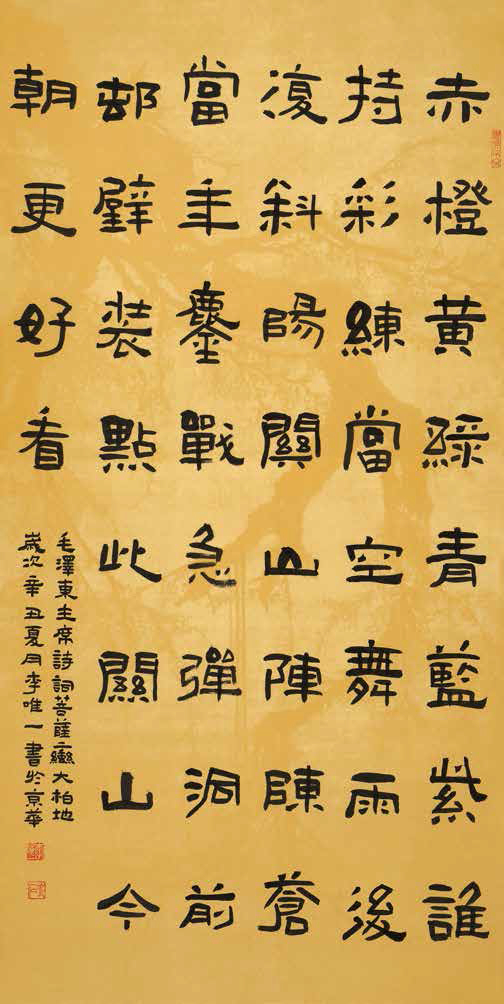 赤橙黄綠青藍紫誰
持彩練當空舞雨後
復斜陽關山陣陣蒼
當年鏖戰急彈洞前
邨壁裝點此關山今
朝更好看
毛澤東主席詩詞菩薩蠻大柏地
歲次辛丑夏月李唯一書於京華